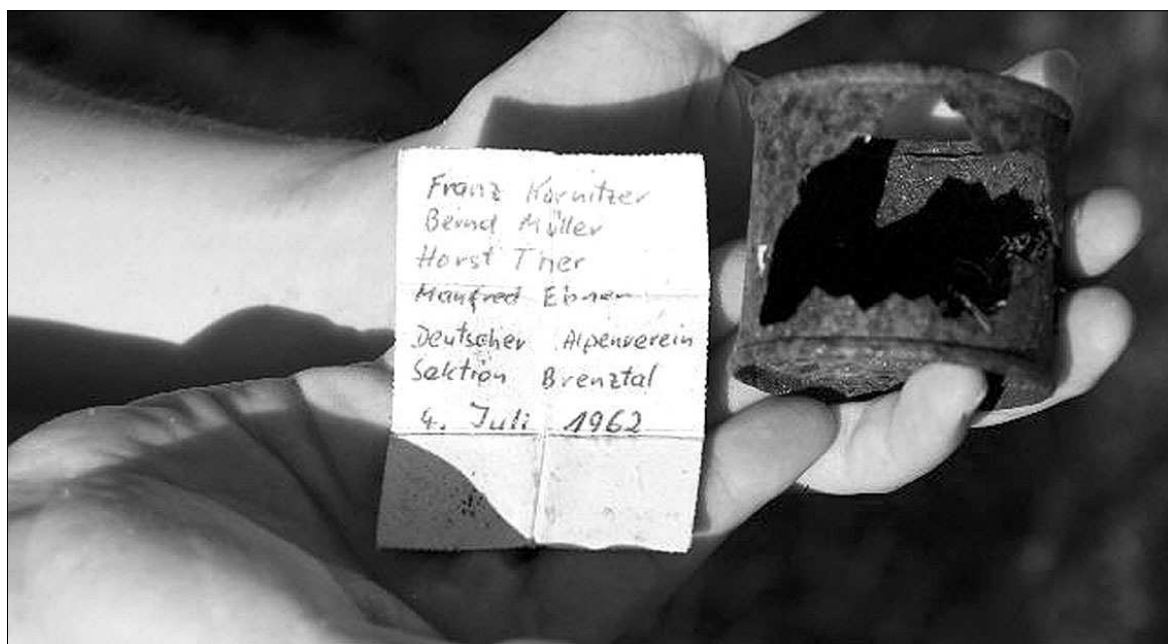 Franz Kornitzer
Bernd Müller
Horst Trier
Manfred Ebner
Deutscher Alpenverein
Sektion Brenztal
4. Juli 1962